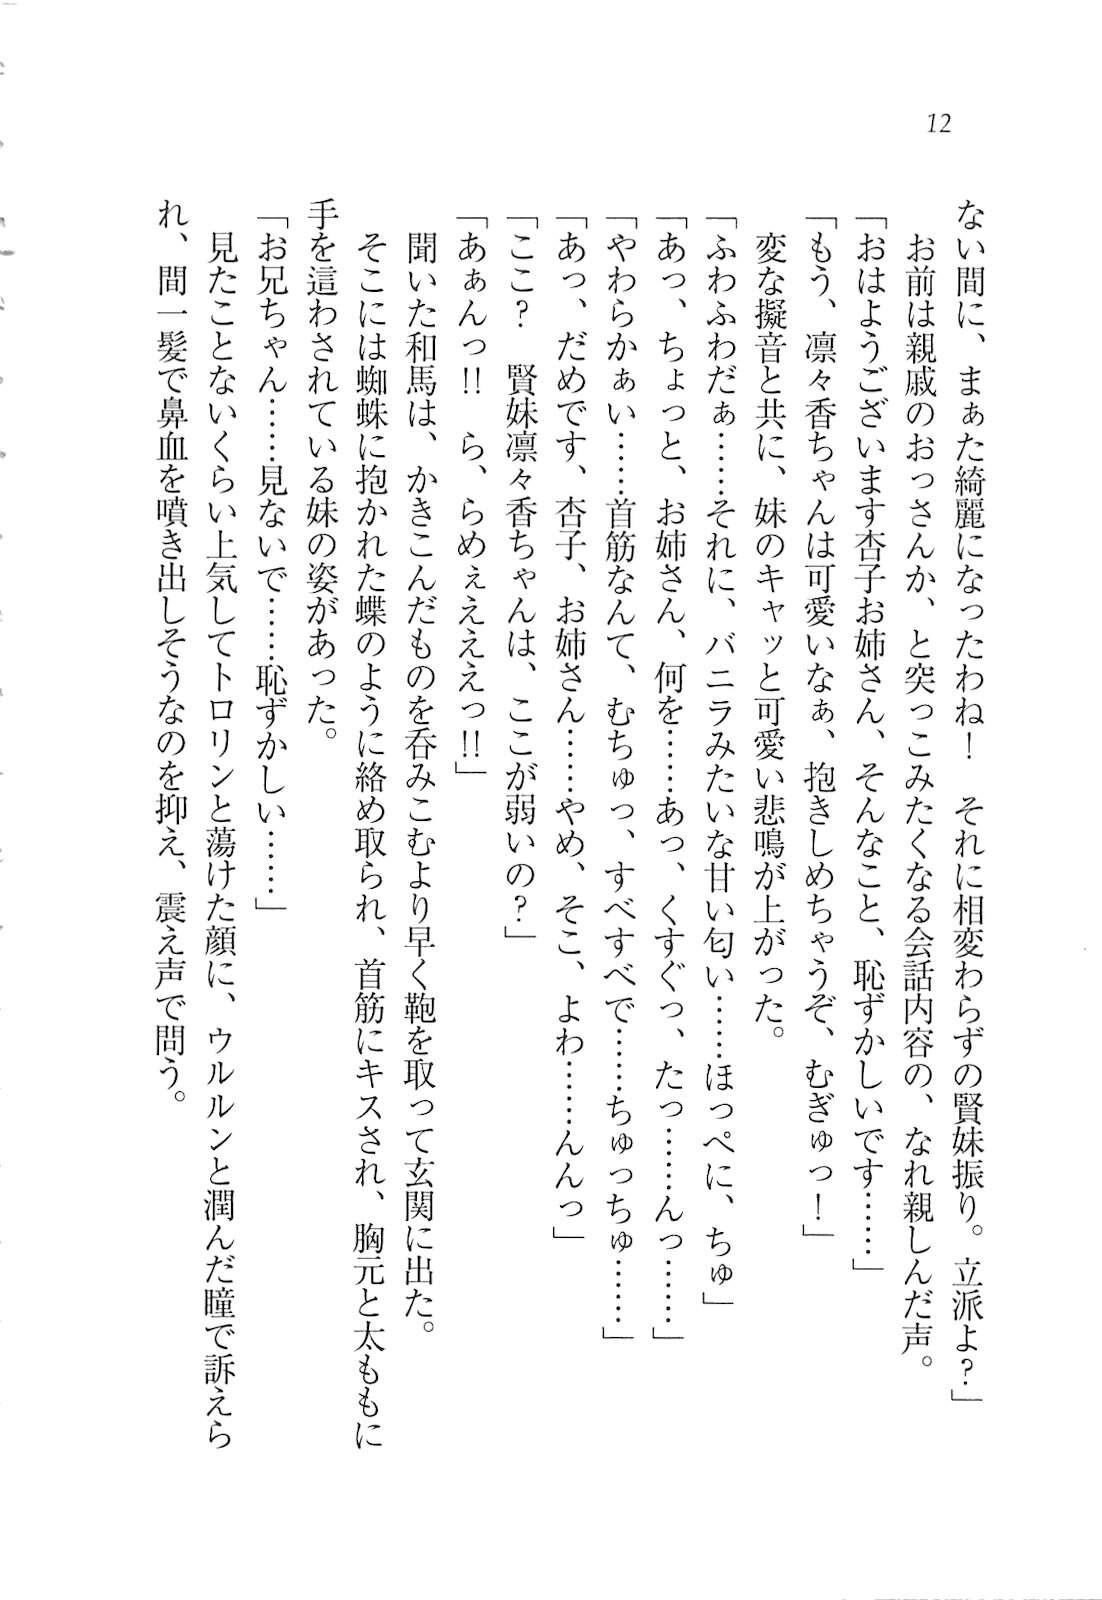 12
ない間に、まぁた綺麗になったわね！　それに相変わらずの賢妹振り。立派よ？」
お前は親戚のおっさんか、と突っこみたくなる会話内容の、なれ親しんだ声。
「おはようございます杏子お姉さん、そんなこと、恥ずかしいです……」
「もう、凛々香ちゃんは可愛いなぁ、抱きしめちゃうぞ、むぎゅっ！」
変な擬音と共に、妹のキャッと可愛い悲鳴が上がった。
「ふわふわだぁ……それに、バニラみたいな甘い匂い……ほっぺに、ちゅ」
「あっ、ちょっと、お姉さん、何を……あっ、くすぐっ、たっ……んっ……」
「やわらかぁい……首筋なんて、むちゅっ、すべすべで……ちゅっちゅ……」
「あっ、だめです、杏子、お姉さん……やめ、そこ、よわ……んんっ」
「ここ？　賢妹凛々香ちゃんは、ここが弱いの？」
「あぁんっ!!　ら、らめぇえええっ!!」
聞いた和馬は、かきこんだものを呑みこむより早く鞄を取って玄関に出た。
そこには蜘蛛に抱かれた蝶のように絡め取られ、首筋にキスされ、胸元と太ももに
手を這わされている妹の姿があった。
「お兄ちゃん……見ないで……恥ずかしい……」
見たことないくらい上気してトロリンと蕩けた顔に、ウルルンと潤んだ瞳で訴えら
れ、間一髪で鼻血を噴き出しそうなのを抑え、震え声で問う。